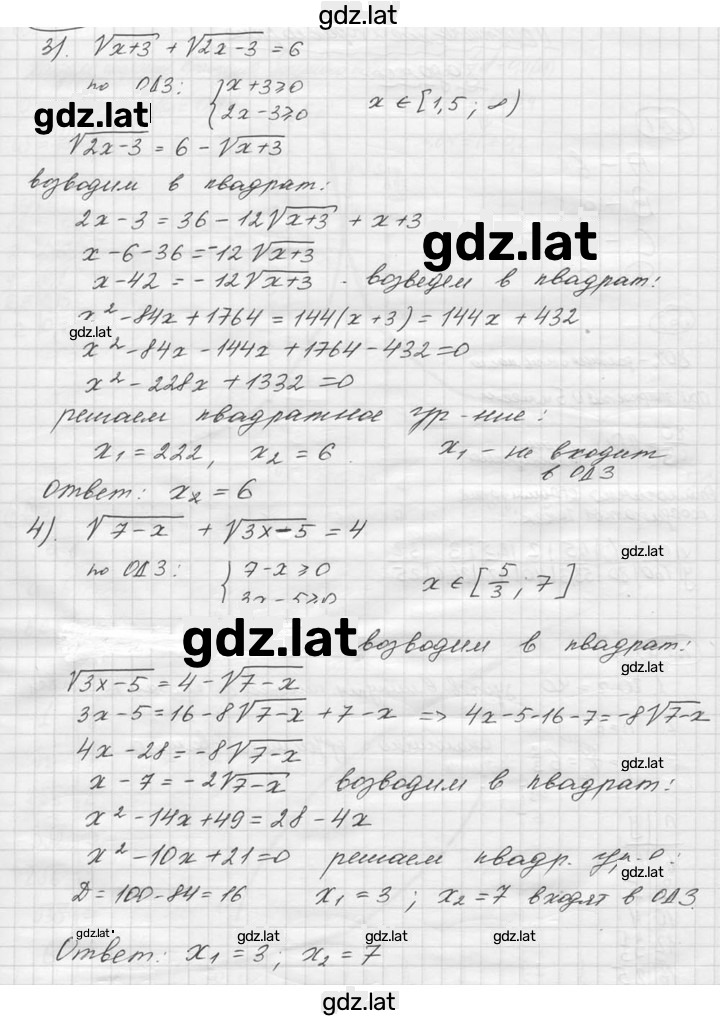 gdz.lat
3). √x+3 + √2x-3 = 6
по ОДЗ: { x+3≥0
2x-3≥0 x ∈ [1,5 ; ∞)
gdz.lat
√2x-3 = 6 - √x+3
возводим в квадрат:
2x-3 = 36 - 12√x+3 + x+3
gdz.lat
x-6-36 = -12√x+3
x-42 = -12√x+3 . возведем в квадрат:
x² - 84x + 1764 = 144(x+3) = 144x + 432
gdz.lat
x² - 84x - 144x + 1764 - 432 = 0
x² - 228x + 1332 = 0
решаем квадратное ур-ние:
x₁ = 222, x₂ = 6. x₁ - не входит
в ОДЗ
Ответ: x₂ = 6
4). √7-x + √3x-5 = 4
gdz.lat
по ОДЗ: { 7-x≥0
3x-5≥0 x ∈ [5/3 ; 7]
gdz.lat
возводим в квадрат:
gdz.lat
√3x-5 = 4 - √7-x
3x-5 = 16 - 8√7-x + 7-x => 4x-5-16-7 = -8√7-x
4x-28 = -8√7-x
gdz.lat
x-7 = -2√7-x возводим в квадрат:
x² - 14x + 49 = 28 - 4x
x² - 10x + 21 = 0 решаем квадр.
gdz.lat
D = 100-84 = 16 x₁ = 3 ; x₂ = 7 входят в ОДЗ
gdz.lat gdz.lat gdz.lat gdz.lat
Ответ: x₁ = 3 ; x₂ = 7
gdz.lat